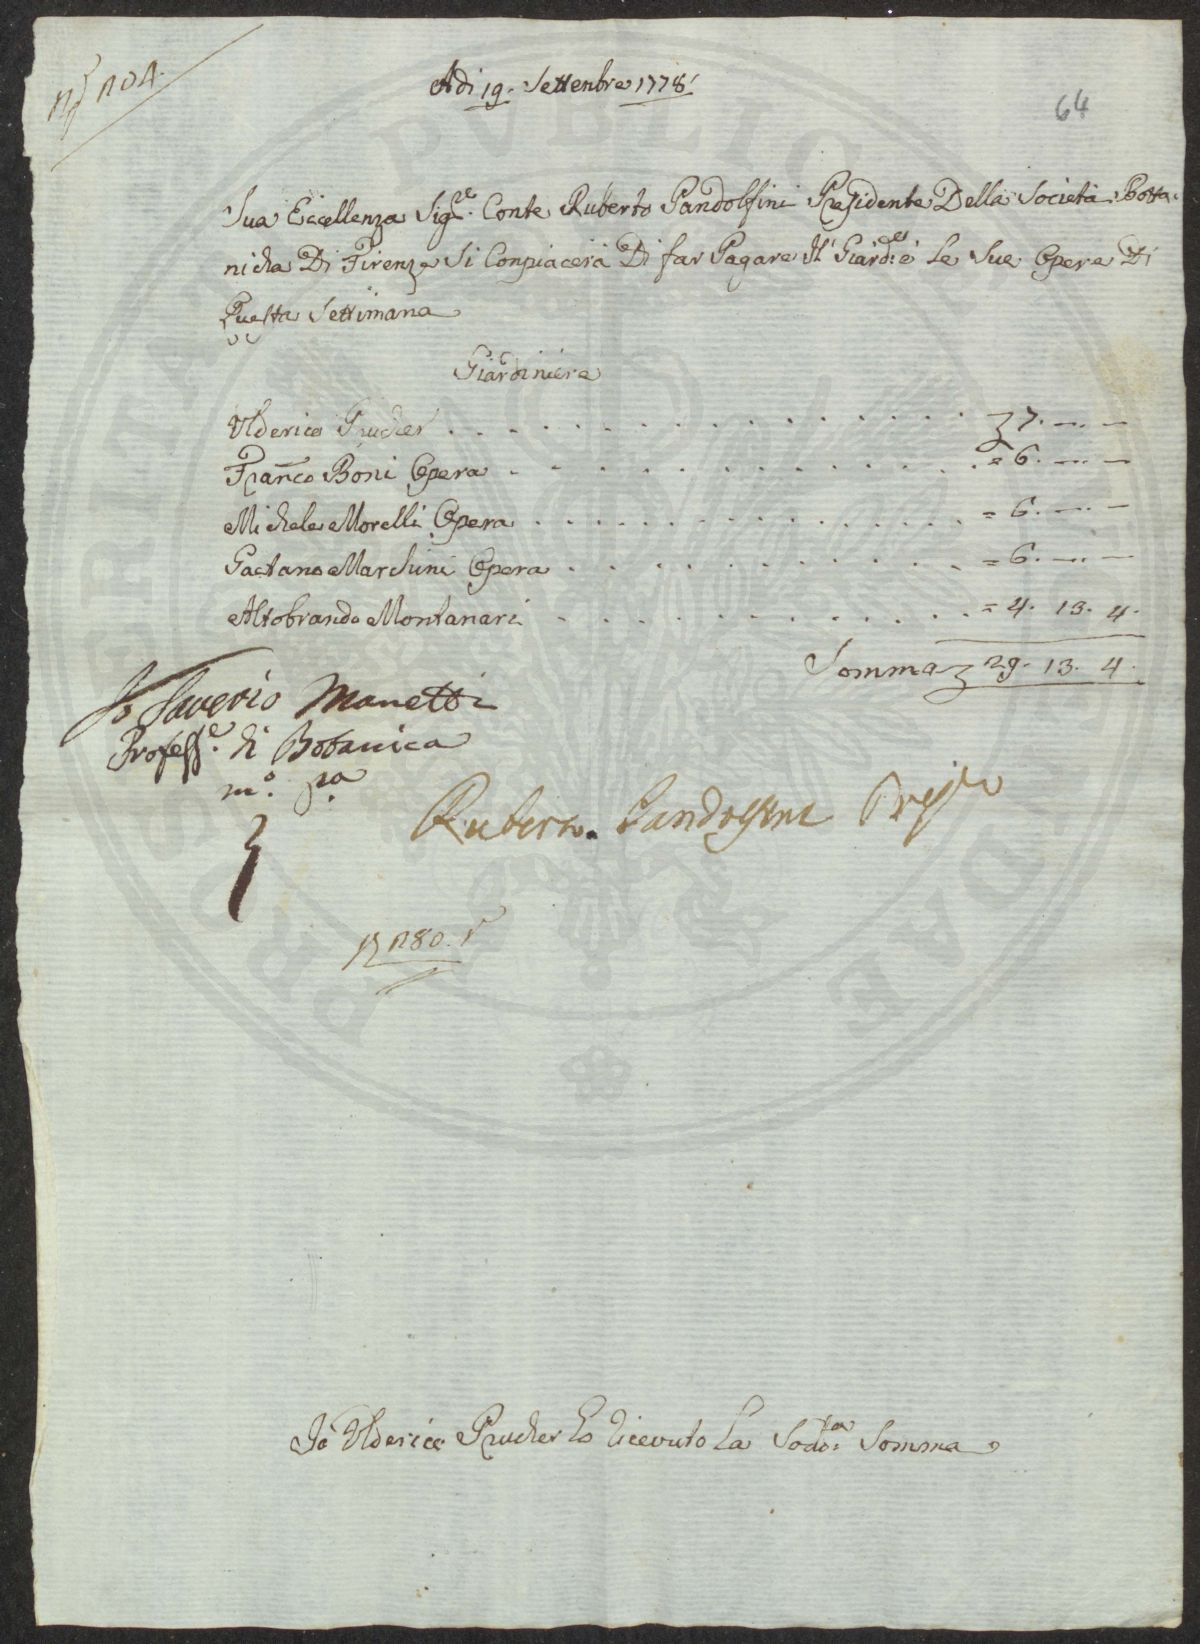 n.º 104.
Adi 19. Settenbre 1778
64
Sua Eccellenza Sig.re Conte Ruberto Pandolfini Presidente Della Società Botta-
nicha Di Firenze Si Conpiacerà Di far Pagare Il Giard.re è Le Sue Opere Di
Questa Settimana
Giardiniere
Ulderico Prucher . . . 7. — —
Fran.co Boni Opera . . . = 6. — —
Michele Morelli Opera . . . = 6. — —
Gaetano Marchini Opera . . . = 6. — —
Altobrando Montanari . . . = 4. 13. 4.
Somma 29. 13. 4.
Io Saverio Manetti
Profess.e di Botanica
m.o p.a
Ruberto Pandolfini Presid.e
1780.
Io Ulderico Prucher ho ricevuto La Sod.ta Somma
PVBLIC